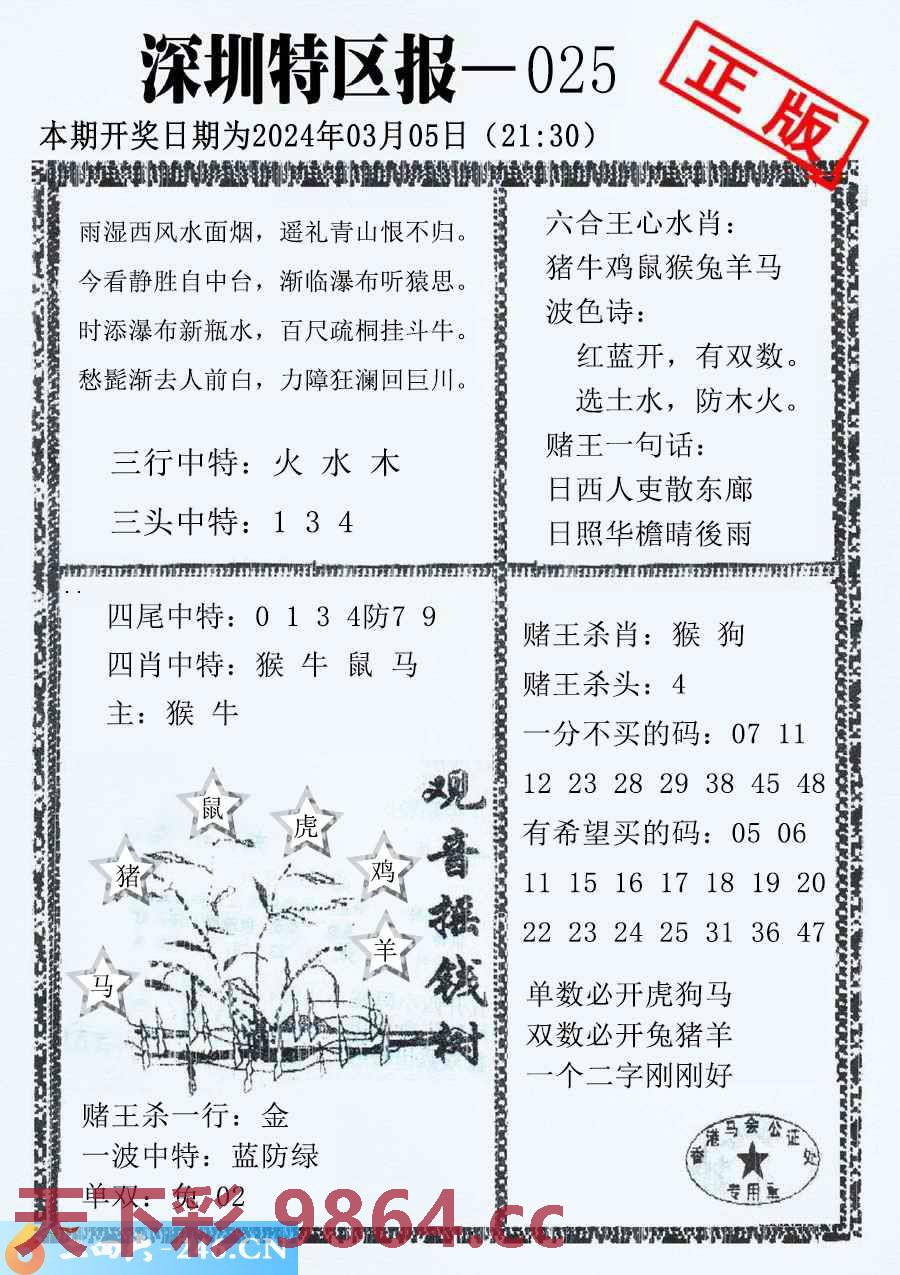 深圳特区报—025
正版
本期开奖日期为2024年03月05日（21:30）
雨湿西风水面烟，遥礼青山恨不归。
今看静胜自中台，渐临瀑布听猿思。
时添瀑布新瓶水，百尺疏桐挂斗牛。
愁髭渐去人前白，力障狂澜回巨川。
三行中特：火 水 木
三头中特：1 3 4
六合王心水肖：
猪牛鸡鼠猴兔羊马
波色诗：
红蓝开，有双数。
选土水，防木火。
赌王一句话：
日西人吏散东廊
日照华檐晴後雨
四尾中特：0 1 3 4防7 9
四肖中特：猴 牛 鼠 马
主：猴 牛
鼠
虎
猪
鸡
羊
马
观音摇钱树
赌王杀一行：金
一波中特：蓝防绿
单双：兔 02
赌王杀肖：猴 狗
赌王杀头：4
一分不买的码：07 11
12 23 28 29 38 45 48
有希望买的码：05 06
11 15 16 17 18 19 20
22 23 24 25 31 36 47
单数必开虎狗马
双数必开兔猪羊
一个二字刚刚好
香港马会公证处
专用章
天下彩 9864.cc